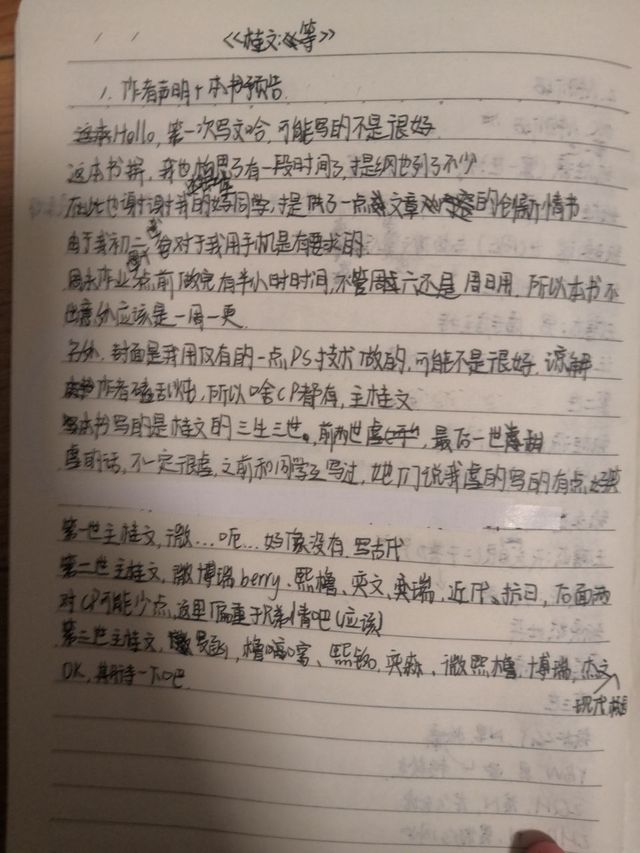 《桂文:等》
1. 作者声明+本书预告
Hello, 第一次写文哈,可能写的不是很好
这本书拼,我也构思了有一段时间了,提纲也列了不少
在此也谢谢我的好同学,提供了一点文章的创新情节
由于我初二,对于我用手机是有要求的
周末作业点前做完有半小时时间,不管周六还是周日用.所以本书不
出意外应该是一周一更.
另外,封面是我用仅有的一点PS技术做的,可能不是很好,谅解
作者磕,所以啥CP都有,主桂文
本书写的是桂文的三生三世。前两世虐,最后一世甜
虐的话,不一定很虐,之前和同学互写过,她们说我虐的写的有点
第一世主桂文,微...呃...好像没有.写古代
第二世主桂文,微博瑞berry、熙橹、奕文、奕瑞,近代、抗日,后面两
对CP可能少点,这里偏重于兄弟情吧(应该)
第三世主桂文,橹嗝窝、熙,奕森、微熙橹,博瑞,
现代
OK,期待一下吧.